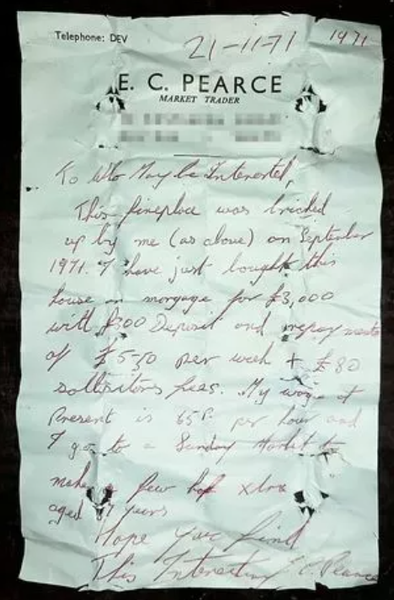 Telephone: DEV
21-11-71 1971
E. C. PEARCE
MARKET TRADER
To Who May be Interested,
This fireplace was bricked
up by me (as above) on September
1971. I have just bought this
house on morgage for £3,000
with £300 Deposit and repayments
of £5-50 per week + £80
sollicitors fees. My wage at
Present is 65P. per hour and
I go to a Sunday Market to
make a few xtra
aged years
Hope you find
This Interesting E.C. Pearce